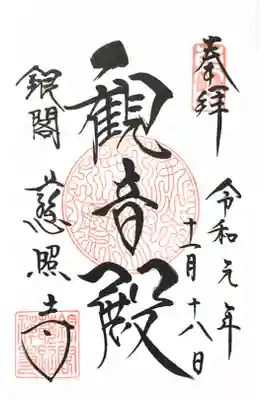 奉拝
令和元年
十一月十八日
観音殿
銀閣
慈照寺